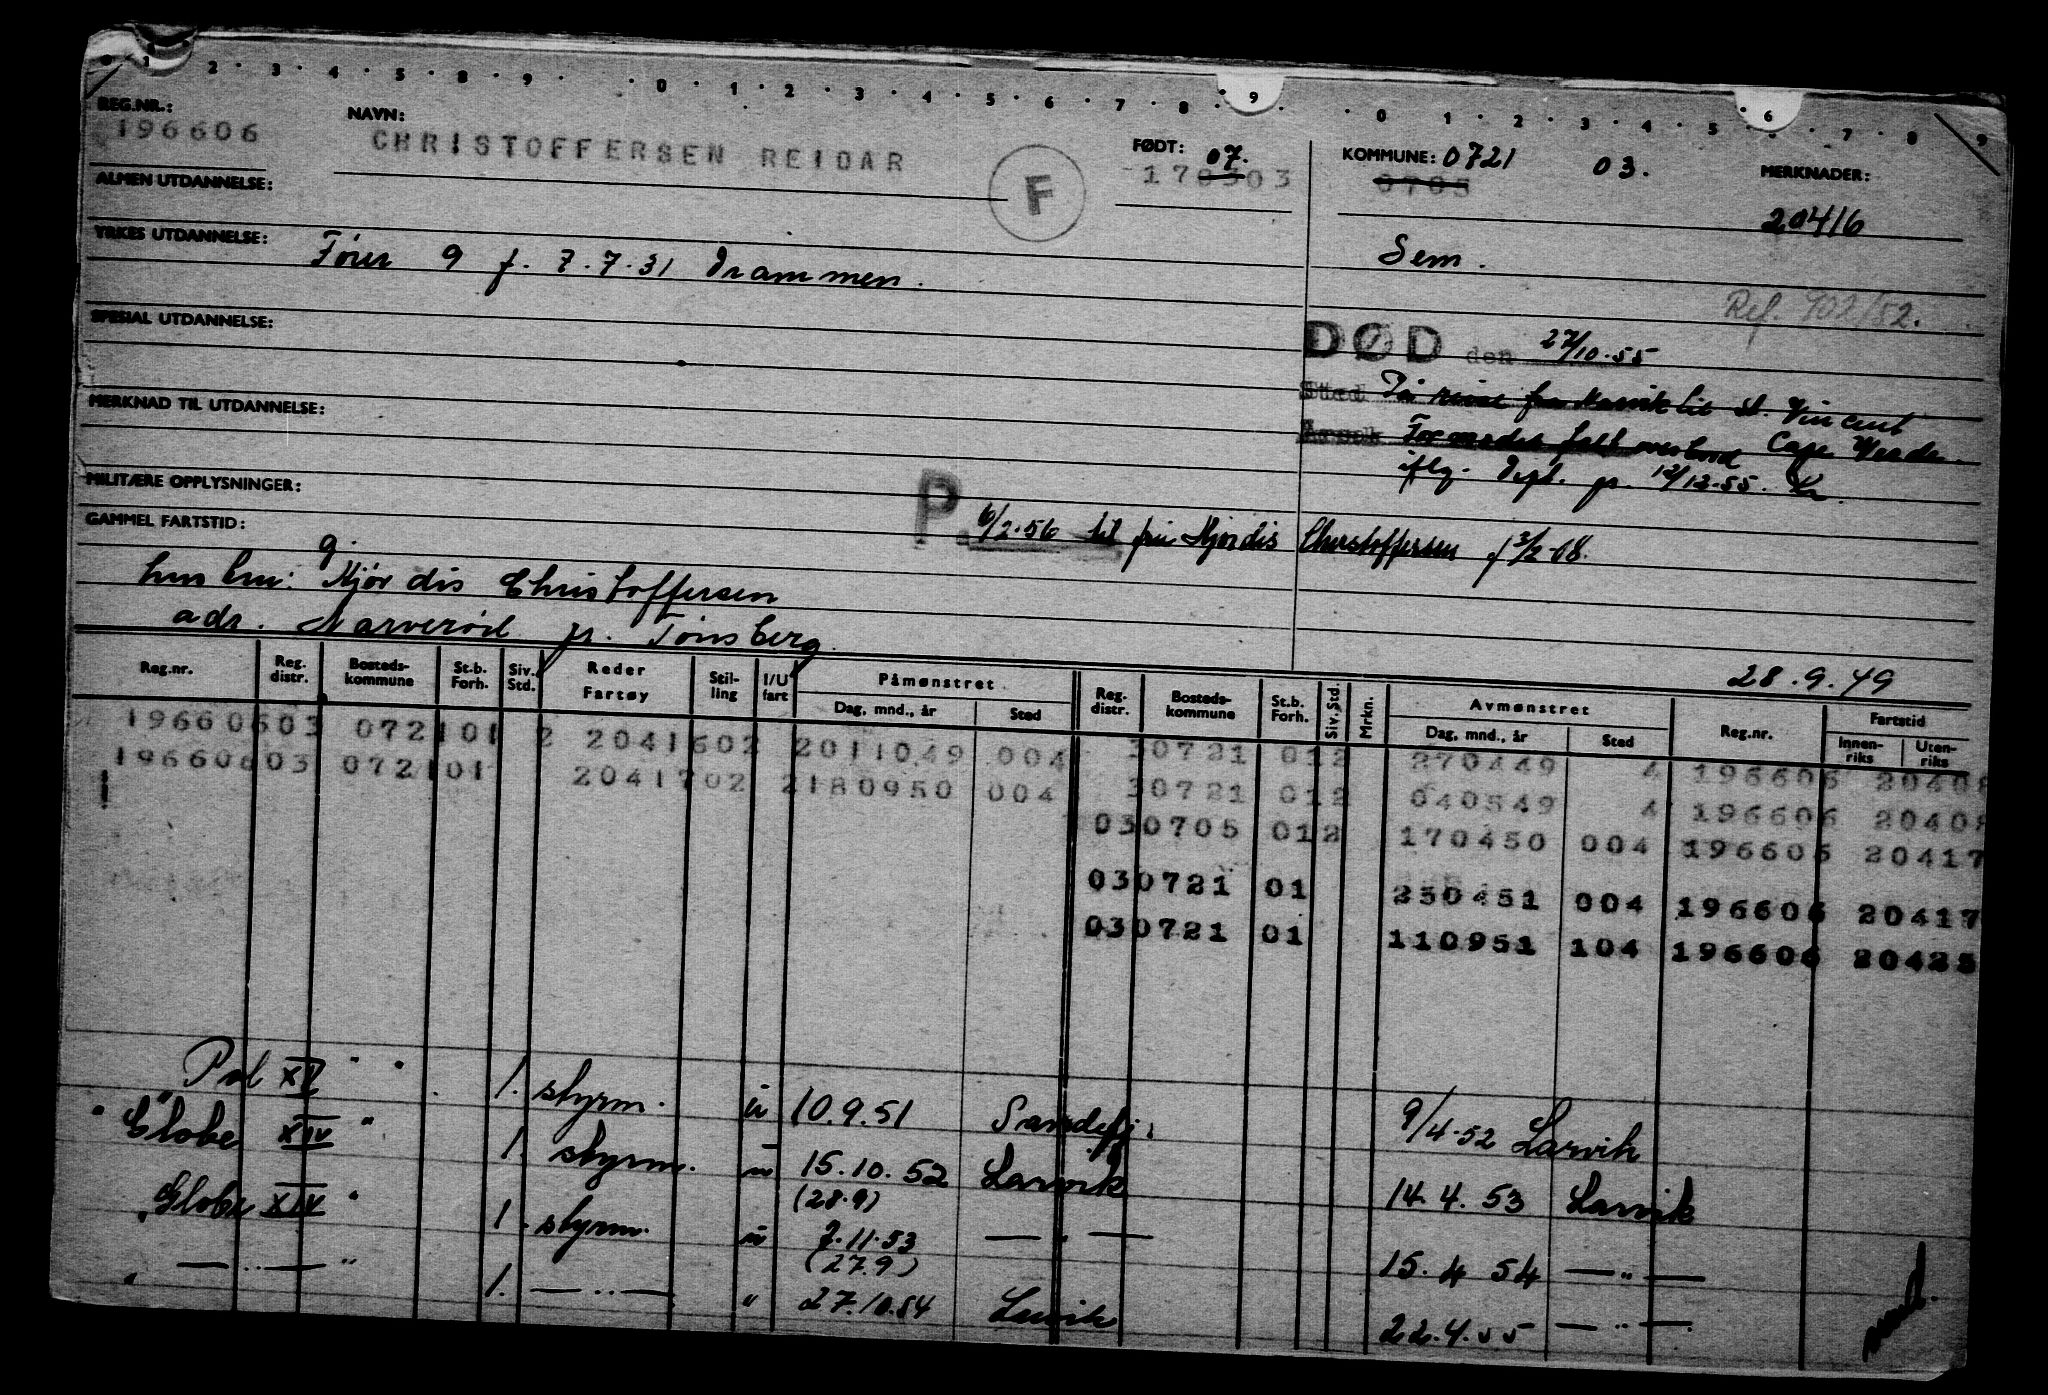 0 1 2 3 4 5 8 9 0 1 2 3 4 5 6 7 8 9 0 1 2 3 4 5 6 7 8 9
REG.NR.: NAVN: FØDT: KOMMUNE: 0721 03. MERKNADER:
196606 CHRISTOFFERSEN REIDAR F 170503 07. 0705
ALMEN UTDANNELSE: 20416
YRKES UTDANNELSE: Fører 9 f. 7.7.31 Drammen. Sem.
Ref. 902/52.
SPESIAL UTDANNELSE: DØD den 27/10.55
Sted På reise fra Narvik til St. Vincent
MERKNAD TIL UTDANNELSE: Årsak Formodes falt overbord Cape Verde.
iflg. Dept. pr. 12/12.55.
MILITÆRE OPPLYSNINGER:
P. 6/2.56 til fru Hjørdis Christoffersen f 3/2-08.
GAMMEL FARTSTID:
g.
hustru: Hjørdis Christoffersen
adr. Narverød pr. Tønsberg.
28.9.49
Reg.nr. Reg. distr. Bosteds-kommune St.b. Forh. Siv. Std. Reder Fartøy Stil-ling I/U fart Påmønstret Dag, mnd., år Sted Reg. distr. Bosteds-kommune St.b. Forh. Siv. Std. Mrkn. Avmønstret Dag, mnd., år Sted Reg.nr. Fartstid Innen-riks Uten-riks
19660603 072101 2 2041602 2011049 004 30721 012 270449 4 196606 20408
19660603 072101 2041702 2180950 004 30721 012 040549 4 196606 20408
030705 012 170450 004 196606 20417
030721 01 250451 004 196606 20417
030721 01 110951 104 196606 20425
Pol XV " " 1. styrm. u 10.9.51 Sandefj. 9/4.52 Larvik
"Globe XIV" 1. styrm. u 15.10.52 Larvik 14.4.53 Larvik
(28.9)
"Globe XIV" 1. styrm. u 7.11.53 — " — 15.4 54 — " —
(27.9)
" — " — " 1. — " — " 27.10.54 Larvik 22.4.55 — " —